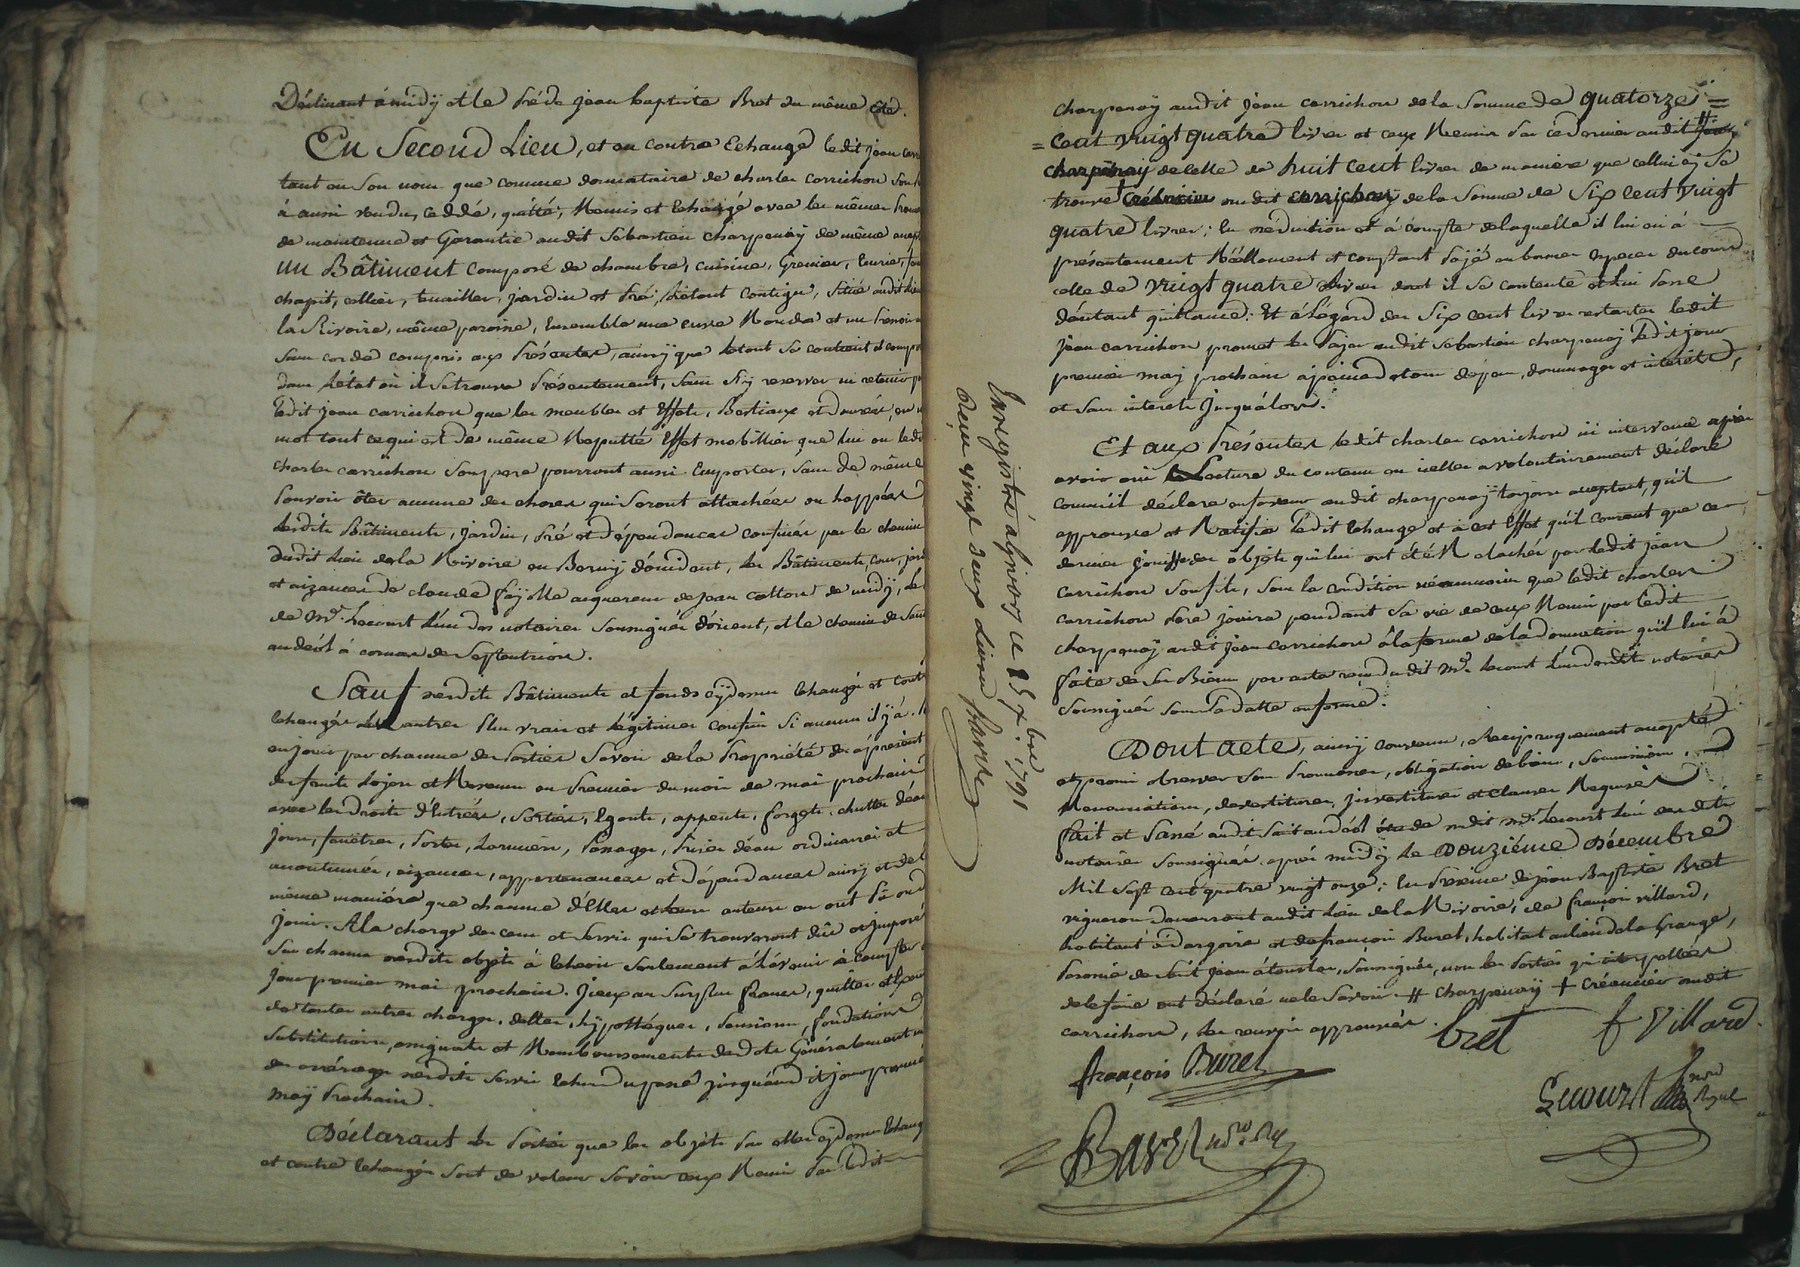 Déclinant à midÿ et le Pré de jean baptiste Bret du même côté.
En Second Lieu, et en contre Echange ledit jean carri
tant en son nom que comme donnataire de charles carrichon son
à aussi vendu, ceddé, quitté, Remis et Echangé avec les mêmes
de maintenue et Garantie audit Sebastien charpenaÿ de même
un Bâtiment composé de chambre, cuisine, Grenier, Ecurie,
chapit, cellier, jardin et Pré, Létout contigu, Situé audit Lieu
la Rivoire, même paroisse, Ensemble une cuve Ronde et un
compris aux Présentes, ainsÿ que letout Se contient et comp
dans l'état où il Setrouve Présentement, Sans S'ÿ reserver ni retenir
Ledit jean carrichon que les meubles et Effets, Bestiaux et denrées, en
mot tout ce qui est de même Reputté Effet mobillier que lui ou ledit
charles carrichon Son pere pourront aussi Emporter, Sans de même
Pouvoir ôter aucune des choses qui Seront attachées ou happées
Lesdits Bâtiments, Jardin, Pré et dépendances confinés par le chemin
Dudit Lieu de la Rivoire au d'occident, les Bâtiments, cour,
et aizances de claude faÿolle acquereur de jean de midÿ,
de Mr. Lecourt L'un des notaires Soussignés d'orient, et le chemin de
audéol à cornas de Septentrion.
Sauf desdits Bâtiments et fonds cÿdevant Echangés et contre
Echangés Les autres Plus vrais et Légitimes confins Si aucuns il ÿ a.
en jouir par chacune des Parties Savoir de la Propriété dès àprésent
des fruits Loyers et Revenus au Premier du mois de mai prochain
avec les droits d'Entrées, Sorties, Egouts, appents, forgets, chuttes d'eau
jours, fenêtres, Portes, Larmiers, Passages, Prises d'eau ordinaires et
accoutumés, aizances, appartenances et Dépendances ainsÿ et de la
même manière que chacune d'Elles et leurs auteurs en ont
Jouir. A la charge des cens et Servis qui Se trouveront dûs et imposés
Sur chacun desdits objets à Echeoir Seulement à l'avenir à compter
Jour premier mai prochain. Iceux au Surplus francs, quittes et
de toutes autres charges, dettes, hÿpottéques, Pensions, fondations
Substitutions, et Remboursements de dots Généralement
des arrérages desdits Servis Echus du passé jusqu'audit jour premier
maÿ Prochain.
Déclarant les Parties que les objets par elles cÿdevant Echang
et contre Echangés Sont de valeur Savoir ceux Remis Par Ledit
charpenaÿ audit jean carrichon de la Somme de quatorze
= Cent vingt quatre livres et ceux Remis Par ce dernier audit
charpenaÿ de celle de huit cent livres de manière que cellui cÿ Se
trouve créancier audit carrichon de la Somme de Six cent vingt
quatre livres; En déduction et à compte de laquelle il lui en à
présentement Réellement et comptant Païé en bonnes espèces du cours
celle de vingt quatre livres dont il Se contente et lui Passe
d'autant quittance. Et à l'égard des Six cent livres restantes ledit
jean carrichon promet les Païer audit Sebastien charpenaÿ ledit jour
premier maÿ prochain à peine de tous dépens, dommages et intérêts,
et sans interets jusqu'alors.
Et aux Présentes ledit charles carrichon ici intervenu après
avoir oui Lecture du contenu en icelles a volontairement déclaré
comme il déclare en faveur audit charpenaÿ toujours acceptant, qu'il
approuve et Ratifie ledit Echange et à cet Effet qu'il consent que ce
dernier jouisse des objets qui lui ont été Relachés par ledit jean
carrichon Son fils, Sous la condition néanmoins que ledit charles
carrichon Pere jouira pendant Sa vie de ceux Remis par ledit
charpenaÿ audit jean carrichon à la forme de la donnation qu'il lui à
faite de Ses Biens par acte reçu dudit Mr. Lecourt L'un desdits notaires
Soussignés Sous Sa datte en forme.
Dont Acte, ainsÿ convenu, et réciproquement accepté
et promis observer Sous Promesses, obligation de biens, Soumissions,
Renonciations, devestitures, investitures et clauses Requises
fait et Passé audit Saint andéol étude dudit Mr. Lecourt L'un desdits
notaires Soussignés après midÿ Le Douziéme Décembre
Mil Sept cent quatre vingt onze; En Présence de jean Baptiste Bret
vigneron demeurant audit Lieu de la Rivoire, de françois villard,
habitant à Dargoire et de françois Burel, habitant au lieu de la Grange,
Paroisse de Saint jean à touslas, Soussignés, non les Parties qui interpellées
de le faire ont déclaré ne le Savoir ++ charpenaÿ + créancier audit
carrichon, Les renvois approuvés.
bret
f Villard
françois Burel
Lecourt nore Royal
Enregistré à givors ce 25 Xbre 1791
Reçu vingt deux Livres